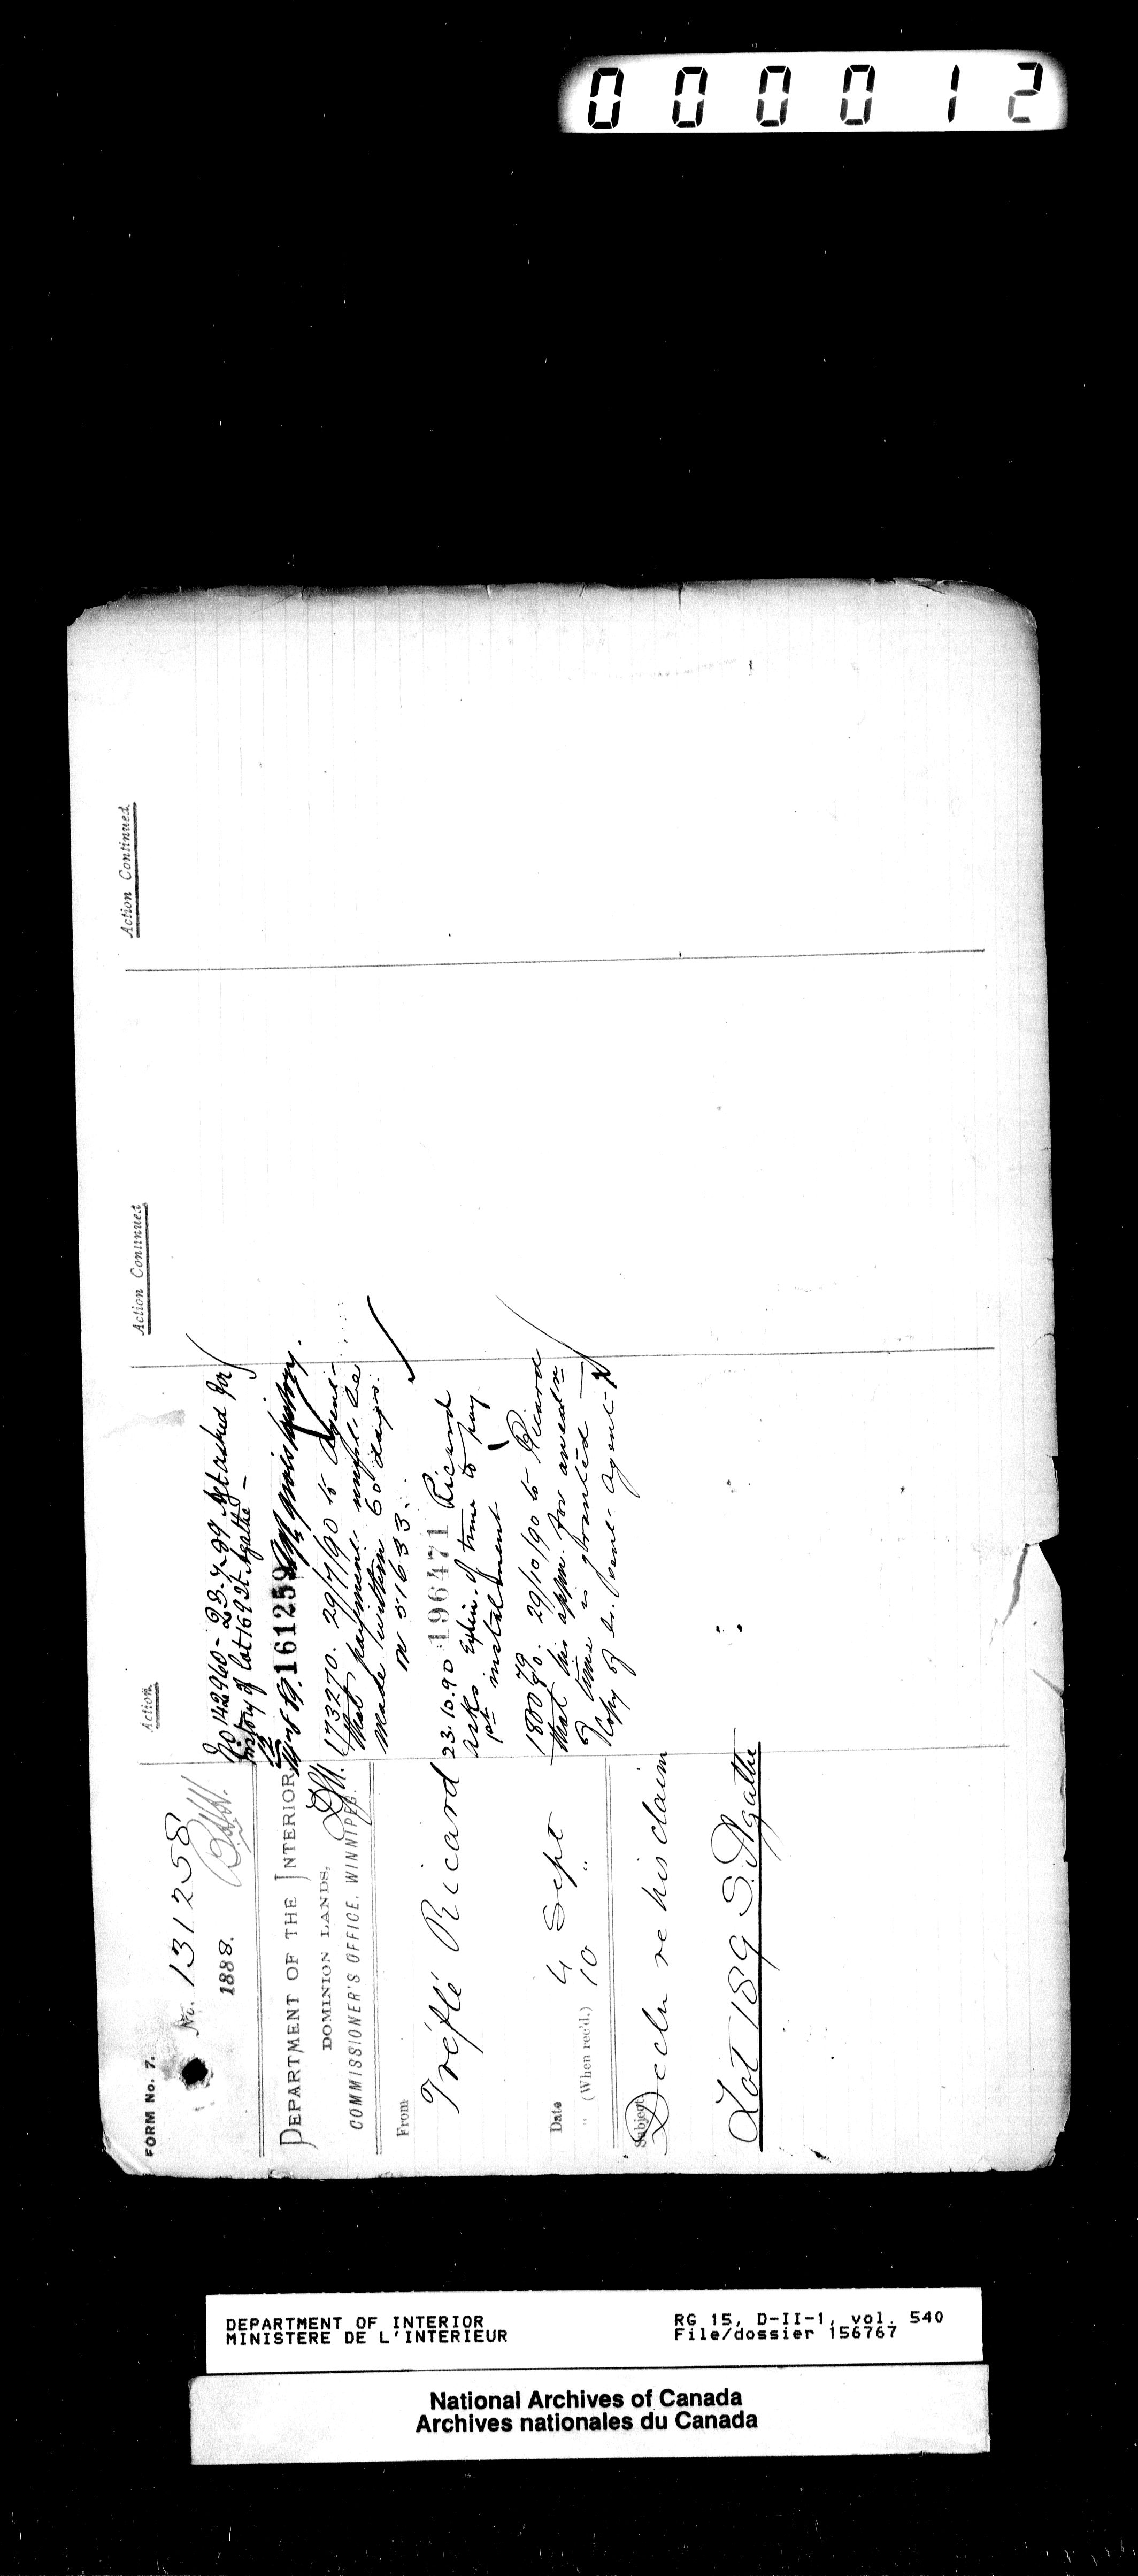 000012
FORM No. 7.
No. 131258
1888.
DEPARTMENT OF THE INTERIOR,
DOMINION LANDS,
COMMISSIONER'S OFFICE, WINNIPEG.
From
Tréflé Ricard
Date 4 Sept
" (When rec'd.) 10 "
Subject
Decln re his claim
Lot 189 S. Agathe
Action.
142960 - 23.4.89 asked for
history of lot 169 St. Agathe -
161259 history.
173270. 29/7/90 to Agent -
that payment must be
made within 60 days.
51633.
23.10.90 196471 Ricard
asks Extn. of time to pay
1st instalment
180079 29/10/90 to Ricard
that his appn. for
of time is granted -
Copy of to Agent
Action Continued
Action Continued
DEPARTMENT OF INTERIOR
MINISTERE DE L'INTERIEUR
RG 15, D-II-1, vol. 540
File/dossier 156767
National Archives of Canada
Archives nationales du Canada